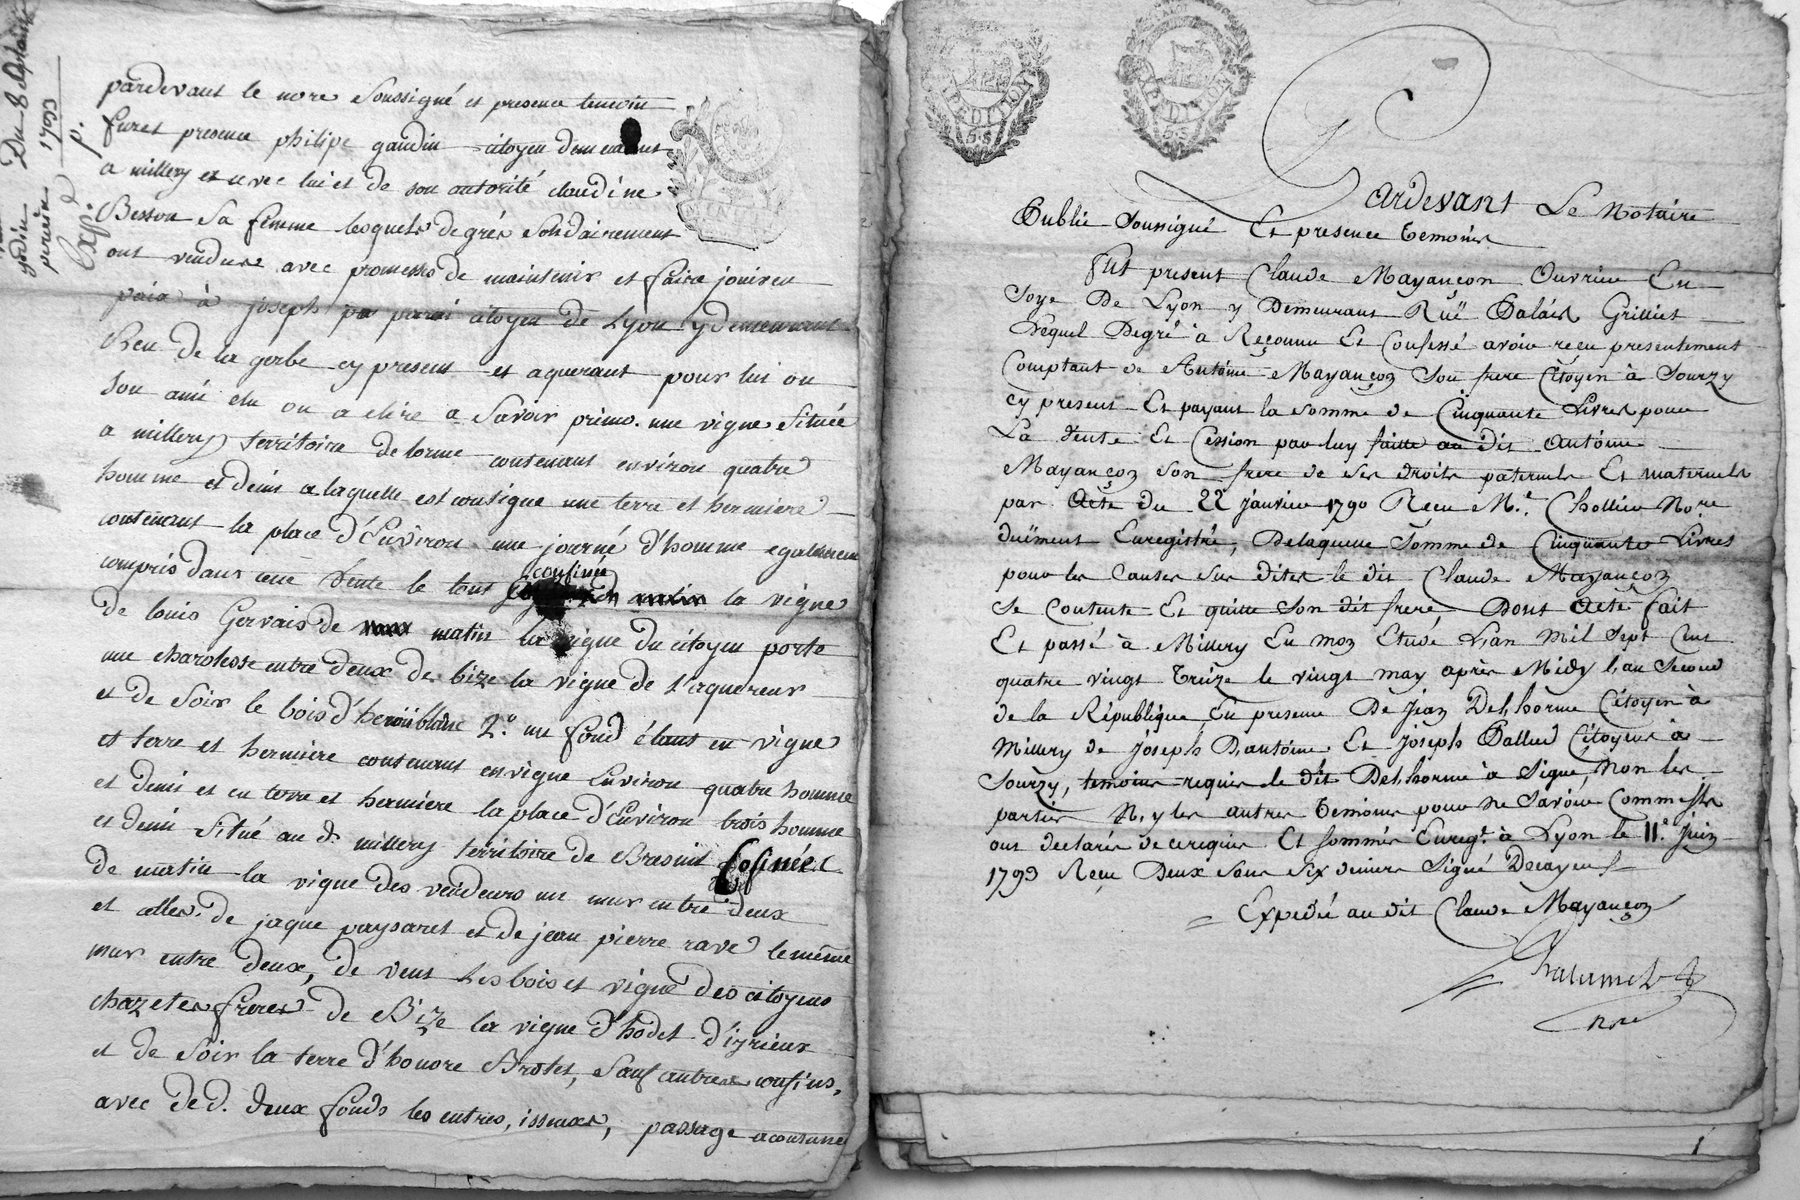 Du 8
1793
p.
pardevant le nore Soussigné et presence temoin
furet presence philipe gaudin citoyen demeurant
a millery et avec lui et de son autorité claudine
Besson Sa femme lesquels de grés Solidairement
ont vendus avec promesses de maintenir et faire jouir en
paix à joseph parai citoyen de Lyon y demeurant
Reu de la gerbe cy present et aquerant pour lui ou
son ami elu ou a elire a Savoir primo. une vigne Située
a millery territoire delorme contenant environ quatre
homme et demis a laquelle est contigue une terre et hermiere
contenant la place d'Environ une journé d'homme egalement
compris dans cette vente le tout confiné la vigne
de louis Gervais de matin la vigne du citoyen porte
une charolesse entre deux de bize la vigne de l'aquereur
et de Soir le bois d' 2.° un fond étant en vigne
et terre et hermiere contenant en vigne Environ quatre homme
et demi et en terre et hermiere la place d'Environ trois homme
et demi Situé au d. millery territoire de Bresnit Cofinéé
de matin la vigne des vendeurs un mur entre deux
et celles de jaque paysaret et de jean pierre rave le même
mur entre deux, de vent Les bois et vigne des citoyens
chazetes freres de Bize la vigne d'hodet d'izrieux
et de Soir la terre d'honore Brotet, Sauf autres confins,
avec de d. deux fonds les entres, issues, passage acoutumé
EXPEDITION
5.S
EXPEDITION
5.S
Pardevant Le Notaire
Public Soussigné Et presence temoins
Fut present Claude Mayançon Ouvrier En
Soye De Lyon y Demeurant Rüe Palais Grillier
Lequel Degré à Reconnu Et Confessé avoir recu presentement
Comptant de Antoine Mayançon Son frere Citoyen à Sourzy
cy present Et payant la somme de Cinquante Livres pour
La Vente Et Cession par luy faitte au dit antoine
Mayançon son frere de ses droits paternels Et maternels
par Acte du 22 janvier 1790 Recu M.e Chollier No.re
duëment Enregistré, Delaquelle Somme de Cinquante Livres
pour les Causes sus dites le dit Claude Mayançon
Se Contente Et quitte Son dit frere Dont Acte Fait
Et passé à Millery En mon Etude L'an Mil Sept Cent
quatre vingt Treize le vingt may après Midy l'an Second
de la République, En presence De jean Delhorme Citoyen à
Millery de joseph Dantoine Et joseph Pallud Citoyens à
Sourzy, temoins requis le dit Delhorme à Signé, Non les
parties N, y les autres temoins pour ne Savoir Comme ils
ont declarés de ce requis Et sommés Enreg.t à Lyon le 11.e Juin
1793 Recu Deux Sous Six deniers Signé Decayeu
= Expedié au dit Claude Mayançon
nore
1